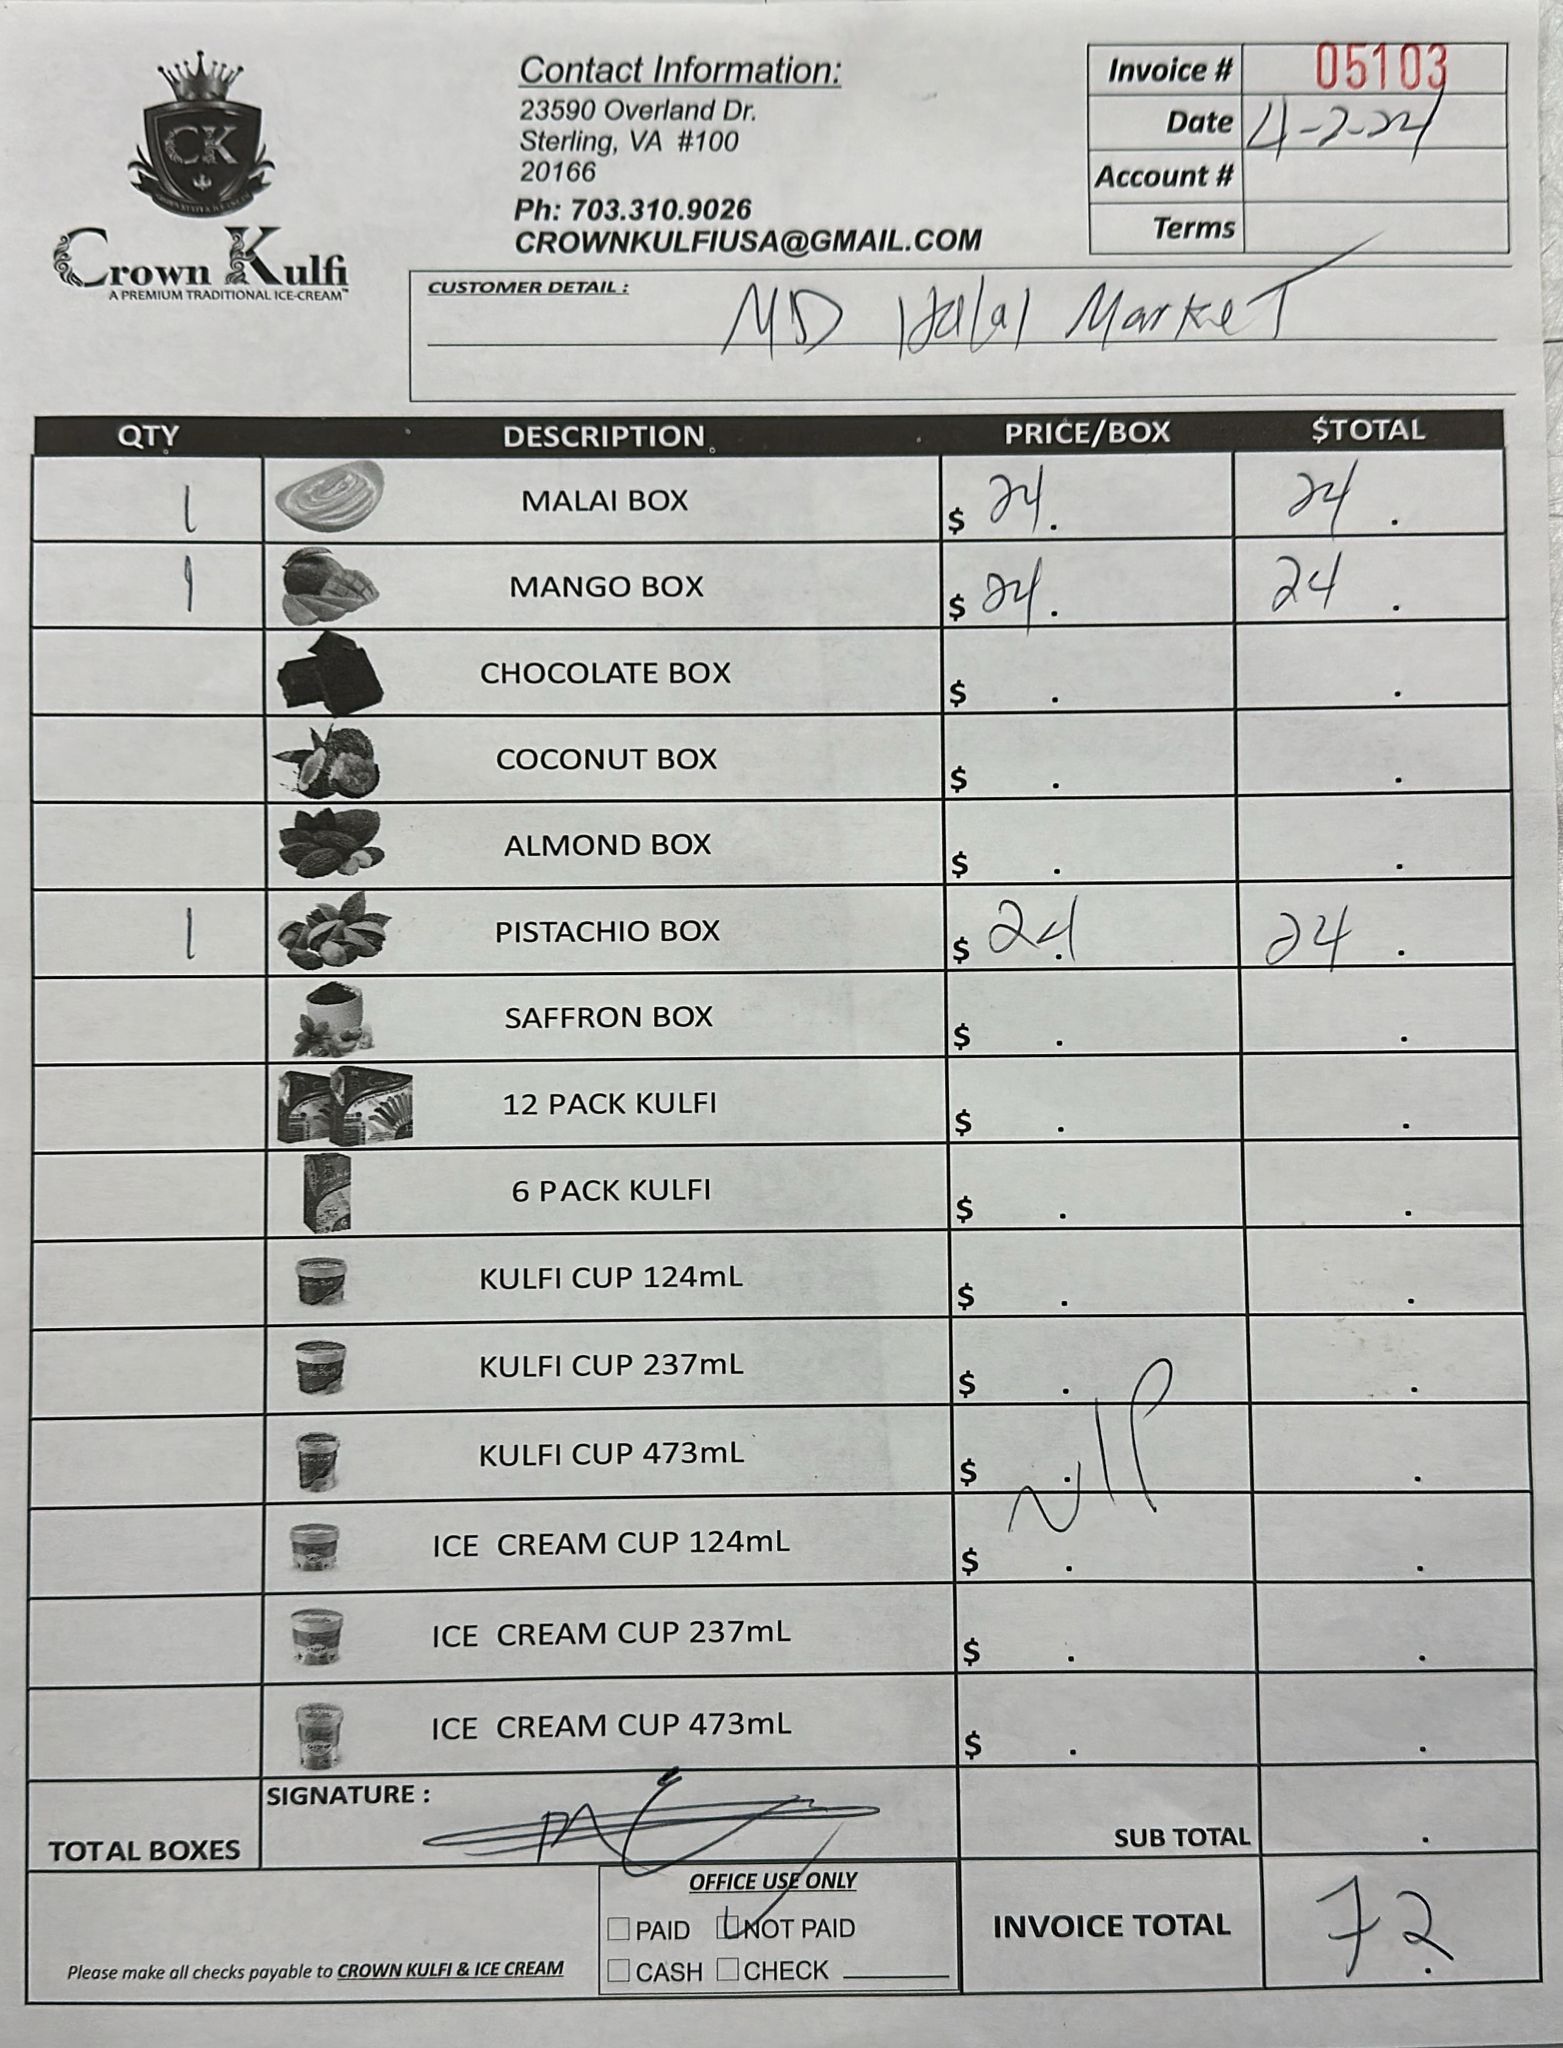 CK
Crown Kulfi
A PREMIUM TRADITIONAL ICE-CREAM™
Contact Information:
23590 Overland Dr.
Sterling, VA #100
20166
Ph: 703.310.9026
CROWNKULFIUSA@GMAIL.COM
Invoice # 05103
Date 4-2-24
Account #
Terms
CUSTOMER DETAIL :
MD Halal Market
QTY DESCRIPTION PRICE/BOX $TOTAL
1 MALAI BOX $ 24. 24 .
1 MANGO BOX $ 24. 24 .
CHOCOLATE BOX $ . .
COCONUT BOX $ . .
ALMOND BOX $ . .
1 PISTACHIO BOX $ 24. 24 .
SAFFRON BOX $ . .
12 PACK KULFI $ . .
6 PACK KULFI $ . .
KULFI CUP 124mL $ . .
KULFI CUP 237mL $ . .
KULFI CUP 473mL $ . .
ICE CREAM CUP 124mL $ . .
ICE CREAM CUP 237mL $ . .
ICE CREAM CUP 473mL $ . .
SIGNATURE :
TOTAL BOXES
SUB TOTAL .
OFFICE USE ONLY
PAID NOT PAID
CASH CHECK
INVOICE TOTAL 72.
Please make all checks payable to CROWN KULFI & ICE CREAM